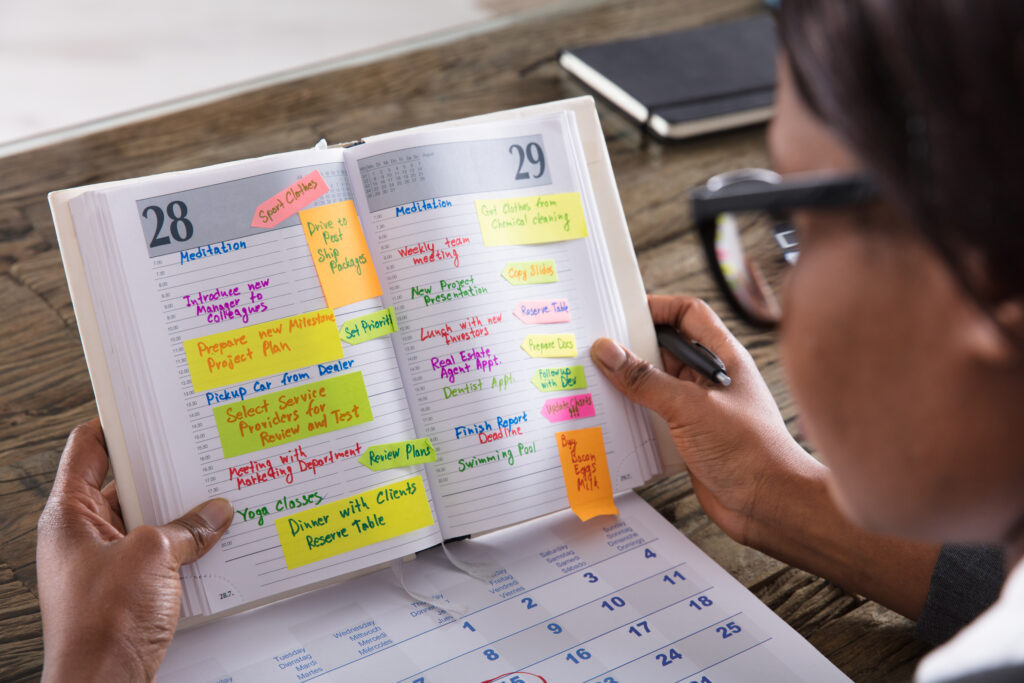 28
Sport Clothes
Meditation
Drive to
Post
Ship
Packages
Introduce new
Manager to
Colleagues
Prepare new Milestone
Project Plan
Set Priority
Pickup Car from Dealer
Select Service
Providers for
Review and Test
Meeting with
Marketing Department
Review Plans
Yoga Classes
Dinner with Clients
Reserve Table
28.7.
29
Meditation
Get Clothes from
Chemical cleaning
Weekly team
meeting
Copy Slides
New Project
Presentation
Reserve Table
Lunch with new
Investors
Prepare Docs
Real Estate
Agent Appt.
Followup
with Dev
Dentist Appt.
Update Charts
!!!
Finish Report
Deadline
Buy
Bacon
Eggs
Milk
Swimming Pool
Tuesday
Dienstag
Mardi
Martes
Wednesday
Mittwoch
Mercredi
Miércoles
Thursday
Donnerstag
Friday
Freitag
Vendredi
Viernes
Saturday
Samstag
Samedi
Sábado
Sunday
Sonntag
Dimanche
Domingo
1 2 3 4
8 9 10 11
15 16 17 18
24 25